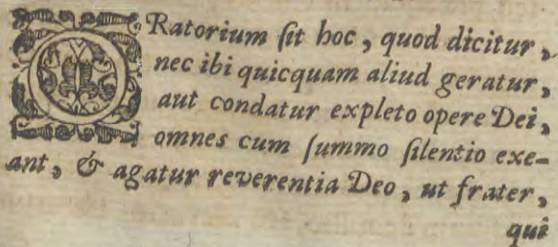 ORatorium sit hoc, quod dicitur,
nec ibi quicquam aliud geratur,
aut condatur expleto opere Dei,
omnes cum summo silentio exe-
ant, & agatur reverentia Deo, ut frater,
qui